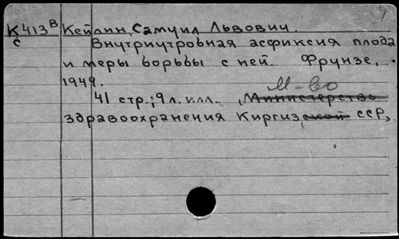 К413в Кейлин, Самуил Львович.
с Внутриутробная асфиксия плода
и меры борьбы с ней. Фрунзе,
1949.
М-во
41 стр.; 9 л. илл. Министерство
здравоохранения Киргизской ССР,